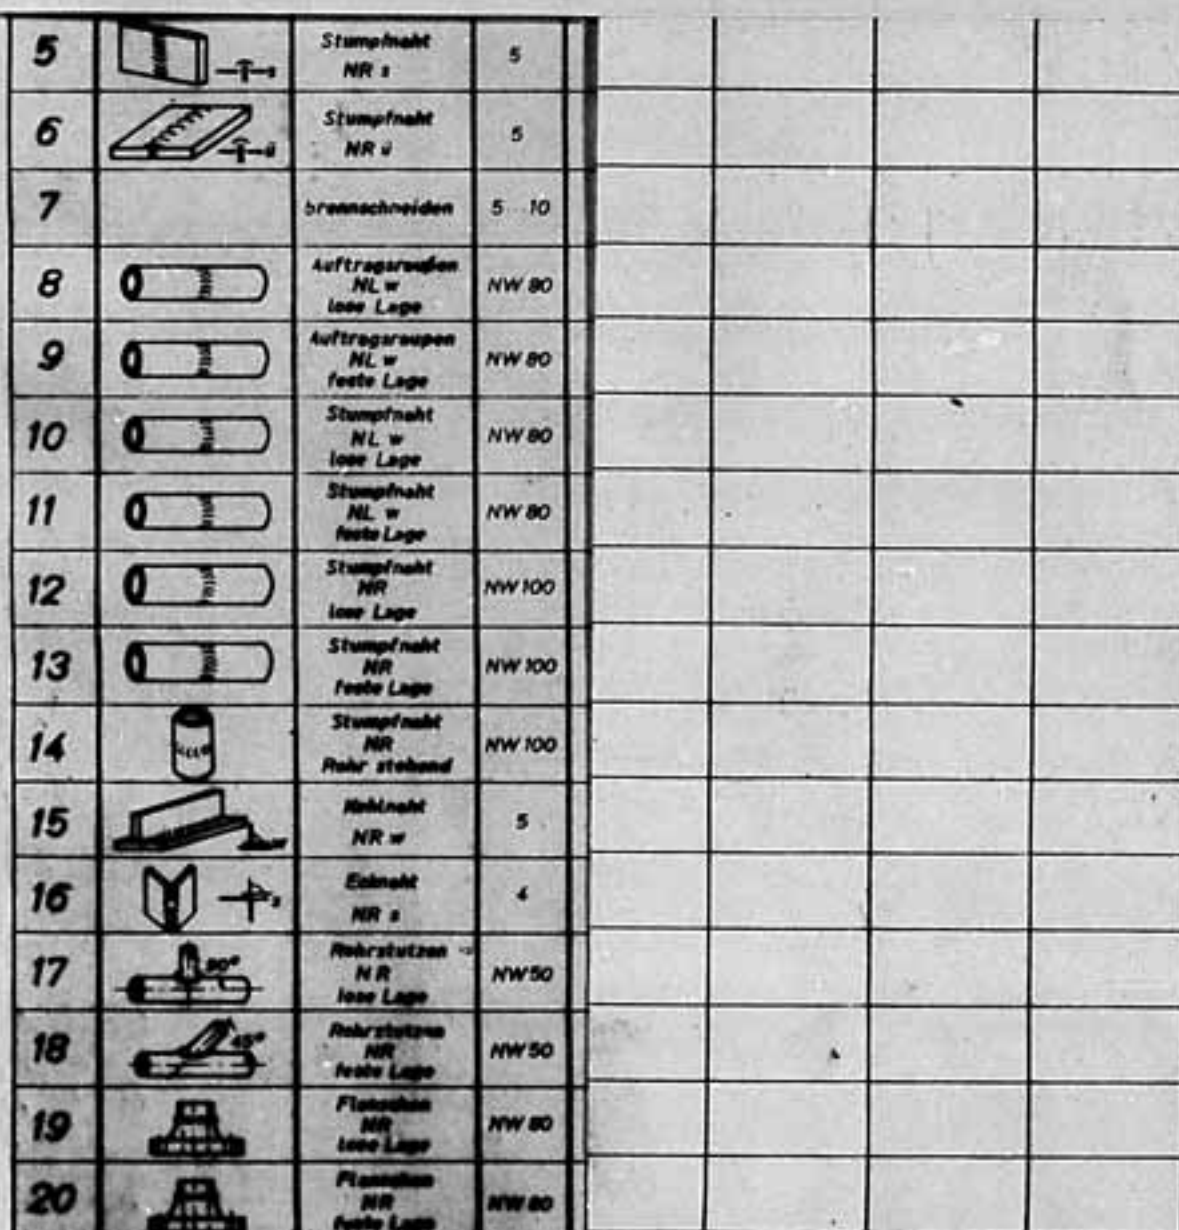 5
Stumpfnaht
NR s
5
6
Stumpfnaht
NR ü
5
7
brennschneiden
5...10
8
Auftragsraupen
NL w
lose Lage
NW 80
9
Auftragsraupen
NL w
feste Lage
NW 80
10
Stumpfnaht
NL w
lose Lage
NW 80
11
Stumpfnaht
NL w
feste Lage
NW 80
12
Stumpfnaht
NR
lose Lage
NW 100
13
Stumpfnaht
NR
feste Lage
NW 100
14
Stumpfnaht
NR
Rohr stehend
NW 100
15
Kehlnaht
NR w
5
16
Ecknaht
NR s
4
17
90°
Rohrstutzen
NR
lose Lage
NW 50
18
45°
Rohrstutzen
NR
feste Lage
NW 50
19
Flanschen
NR
lose Lage
NW 80
20
Flanschen
NR
feste Lage
NW 80